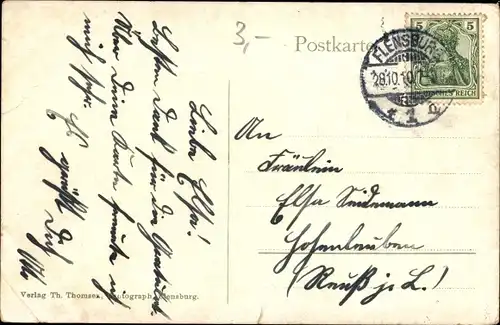 3,-
Postkarte
5 5
FLENSBURG
28.10.10.
REICH
* 1 c
Liebe Elsa!
Besten Dank für die Gratulat.
Über Deine Karte freute ich
mich sehr. Es grüßt Dich
Otto
An
Fräulein
Elsa Seidemann
Hohenleuben
(Reuß j. L.)
Verlag Th. Thomsen, Flensburg.